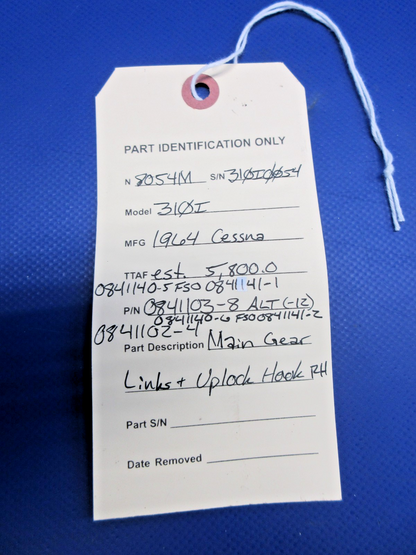 PART IDENTIFICATION ONLY
N 8054M S/N 310I0054
Model 310I
MFG 1964 Cessna
TTAF est. 5,800.0
0841140-5 FSO 0841141-1
P/N 0841103-8 ALT (-12)
0841140-6 FSO 0841141-2
0841102-4
Part Description Main Gear
Links + Uplock Hook RH
Part S/N
Date Removed